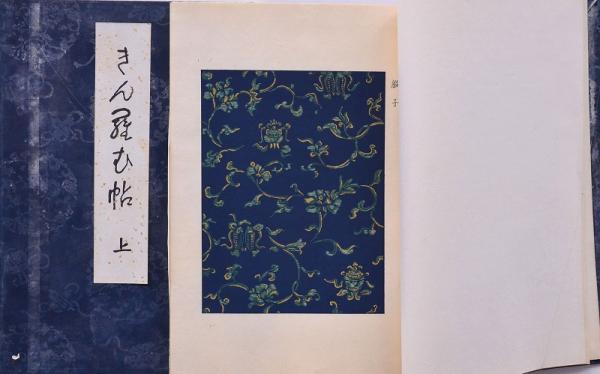 きん羅む帖
上
緞子